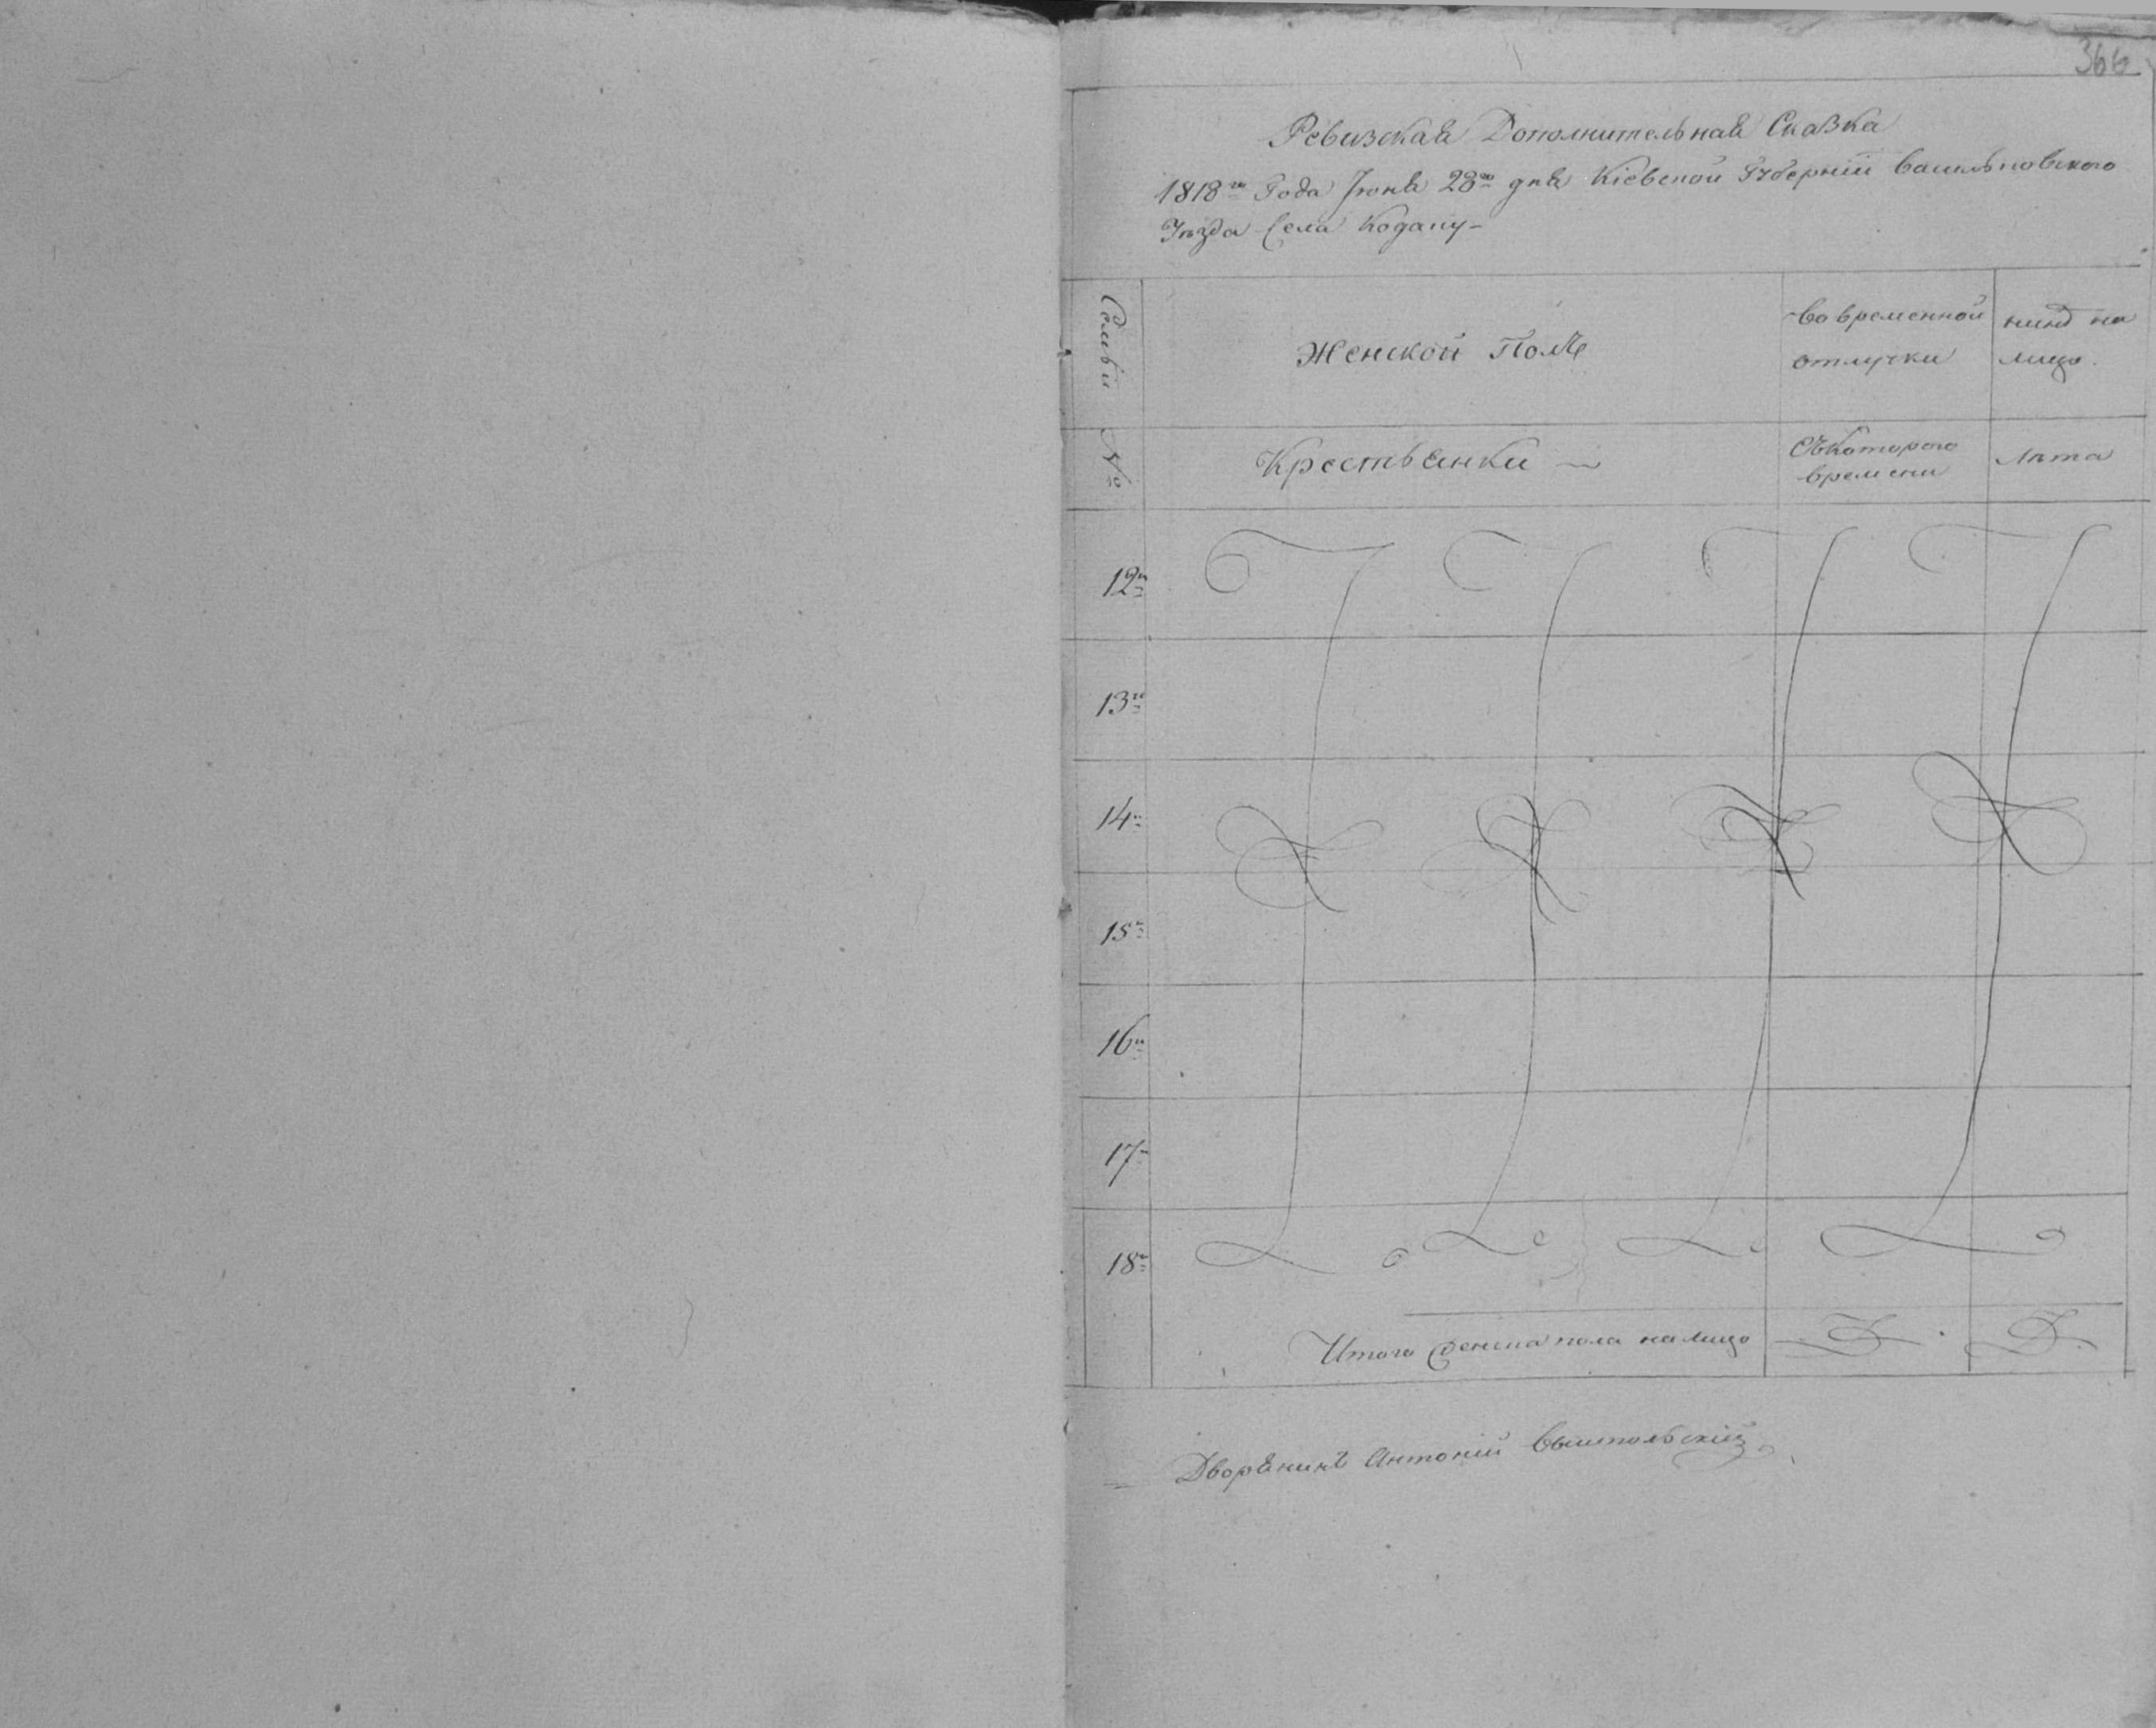 366
Ревизская Дополнительная Сказка
1818го Года Июня 28го дня Кіевской Губерніи Васильковского
Уѣзда Села Кодаку
Семьи
Женской Полъ
Во временной
отлучки
нинѣ на
лицо.
№
Крестьянки
Съ которого
времени
лѣта
12я
13я
14я
15я
16я
17я
18я
Итого женска пола на лицо
Дворянинъ Антоній